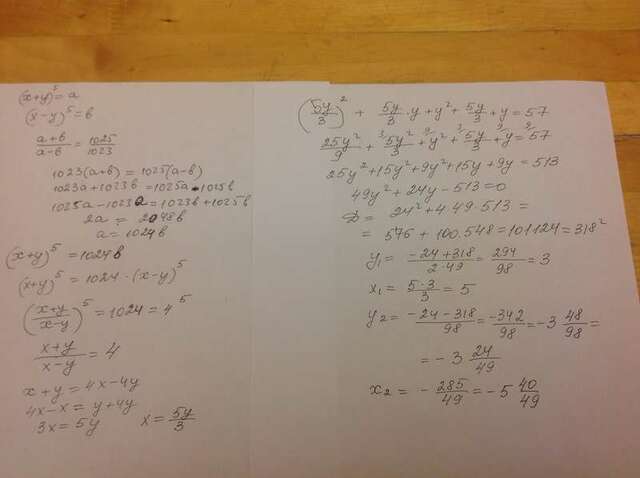 (x+y)⁵ = a
(x−y)⁵ = b
(a+b)/(a−b) = 1025/1023
1023(a+b) = 1025(a−b)
1023a+1023b = 1025a−1025b
1025a−1023a = 1023b+1025b
2a = 2048b
a = 1024b
(x+y)⁵ = 1024b
(x+y)⁵ = 1024·(x−y)⁵
((x+y)/(x−y))⁵ = 1024 = 4⁵
(x+y)/(x−y) = 4
x+y = 4x−4y
4x−x = y+4y
3x = 5y x = 5y/3
(5y/3)² + 5y/3·y + y² + 5y/3 + y = 57
25y²/9 + ³5y²/3 + ⁹y² + ³5y/3 + ⁹y = ⁹57
25y²+15y²+9y²+15y+9y = 513
49y²+24y−513 = 0
D = 24²+4·49·513 =
= 576 + 100.548 = 101124 = 318²
y₁ = (−24+318)/(2·49) = 294/98 = 3
x₁ = 5·3/3 = 5
y₂ = (−24−318)/98 = −342/98 = −3 48/98 =
= −3 24/49
x₂ = −285/49 = −5 40/49